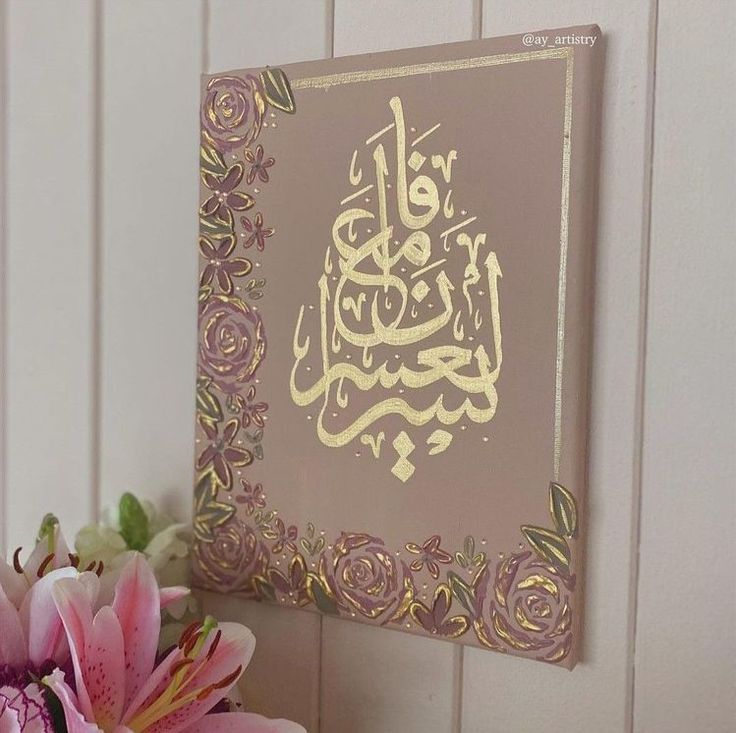 @ay_artistry
فإن مع العسر يسرا